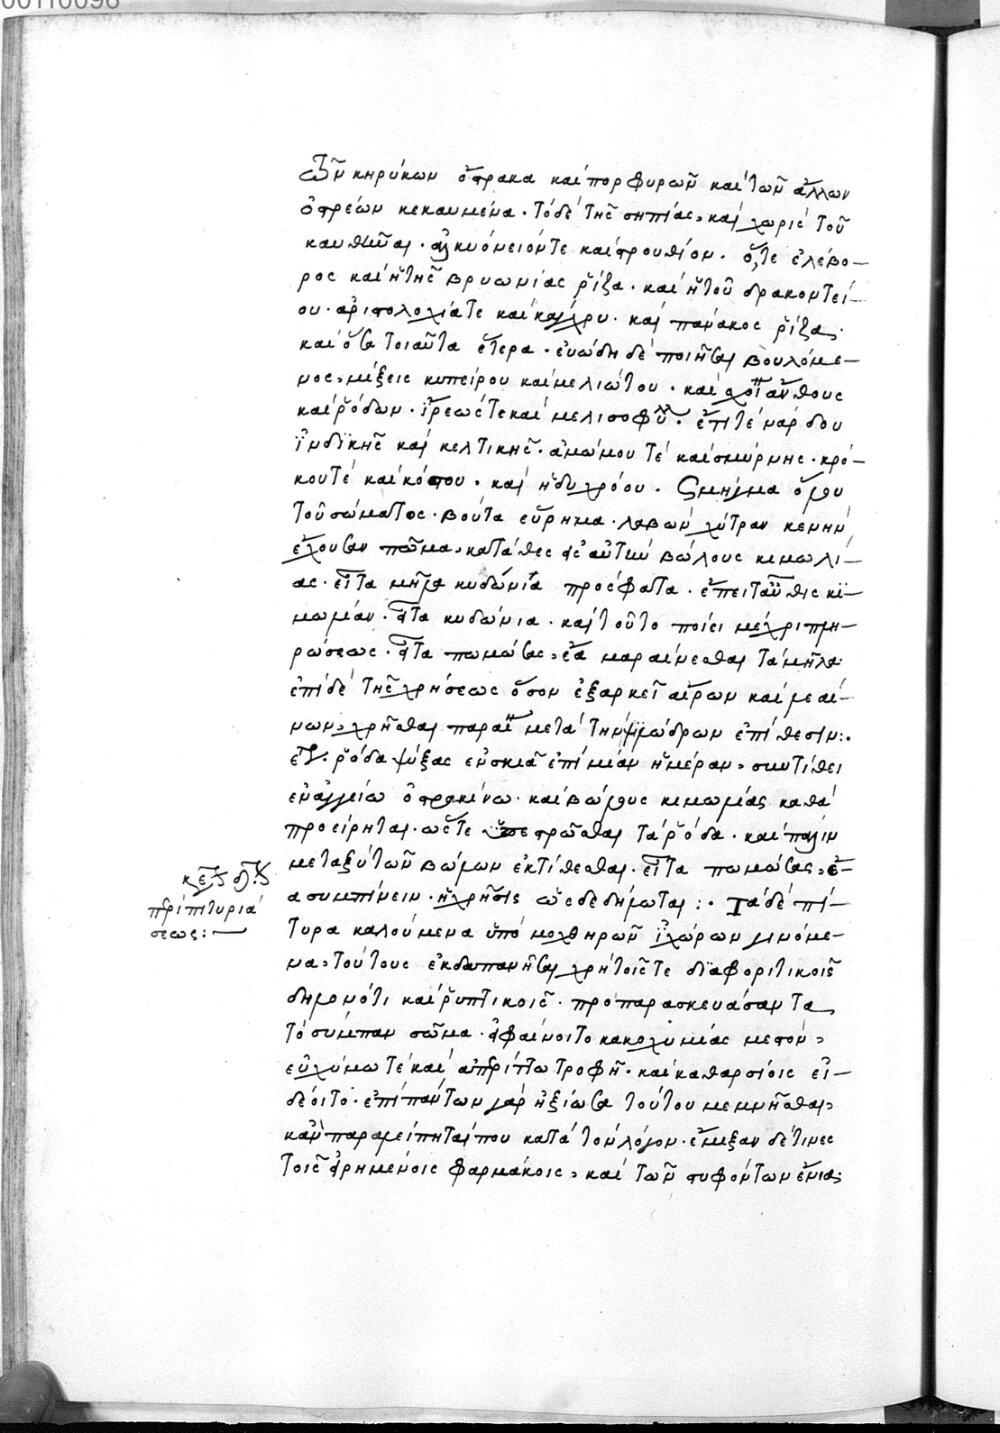 00110098
ῶν κηρύκων ὄστρακα καὶ πορφυρῶν καὶ τῶν ἄλλων
ὀστρέων κεκαυμένα· τὸ δὲ τῆς σηπίας, καὶ χωρὶς τοῦ
καυθῆναι· ἀλκυόνειόν τε καὶ στρουθίον· ὅ, τε ἐλέβο-
ρος καὶ ἡ τῆς βρυωνίας ῥίζα· καὶ ἡ τοῦ δρακοντεί-
ου· ἀριστολοχία τε καὶ κάγχρυ· καὶ πάνακος ῥίζα,
καὶ ὅσα τοιαῦτα ἕτερα· εὐώδη δὲ ποιῆσαι βουλόμε-
νος, μίξεις κυπείρου καὶ μελιώτου· καὶ σχοίνου ἄνθους
καὶ ῥόδων· ἴρεώς τε καὶ μελισοφύλλου· ἔτι τὲ νάρδου
ἰνδικῆς καὶ κελτικῆς· ἀμώμου τὲ καὶ σμύρνης· κρό-
κου τὲ καὶ κόστου· καὶ ἡδυχρόου. Σμῆγμα ὅλου
τοῦ σώματος· βούτα εὕρημα· λαβὼν χύτραν κενὴν
ἔχουσαν πῶμα, κατάθες εἰς αὐτὴν βώλους κιμωλί-
ας· εἶτα μῆλα κυδώνια πρόσφατα· ἔπειτ' αὖθις κι-
μωλίαν· εἶτα κυδώνια· καὶ τοῦτο ποίει μέχρι πλη-
ρώσεως· εἶτα πωμάσας, ἔα μαραίνεσθαι τὰ μῆλα·
ἐπὶ δὲ τῆς χρήσεως ὅσον ἐξαρκεῖ αἴρων καὶ λεαί-
νων, χρῆσθαι παραινεῖ μετὰ τὴν ψιμώδρων ἐπίθεσιν:·
ῥόδα ψύξας ἐν σκιᾷ ἐπὶ μίαν ἡμέραν, συντίθει
ἐν ἀγγείω ὀστρακίνω· καὶ βώλους κιμωλίας καθὰ
προείρηται· ὥστε ὑπεστρῶσθαι τὰ ῥόδα· καὶ πάλιν
μεταξὺ τῶν βώλων ἐκτίθεσθαι· εἶτα πωμάσας, ἔ-
α συμπίνειν· ἡ χρῆσις ὡς δεδήλωται:· Τὰ δὲ πί-
τυρα καλούμενα ὑπὸ μοχθηρῶν ἰχώρων γινόμε-
να, τούτους ἐκδαπανῆσαι χρὴ τοῖς τε διαφοριτικοῖς
δηλονότι καὶ ῥυπτικοῖς· προπαρασκευάσαντα
τὸ σύμπαν σῶμα· εἰ φαίνοιτο κακοχυμίας μεστόν,
εὐχύμω τὲ καὶ ἀπερίττω τροφῇ· καὶ καθαρσίοις εἰ
δέοιτο· ἐπὶ πάντων γὰρ ἠξίωσα τούτου μεμνῆσθαι,
κἂν παραλείπηταί που κατὰ τὸν λόγον· ἔμιξαν δὲ τινὲς
τοῖς εἰρημένοις φαρμάκοις, καὶ τῶν στυφόντων ἔνια,
περὶ πιτυριά
σεως:—